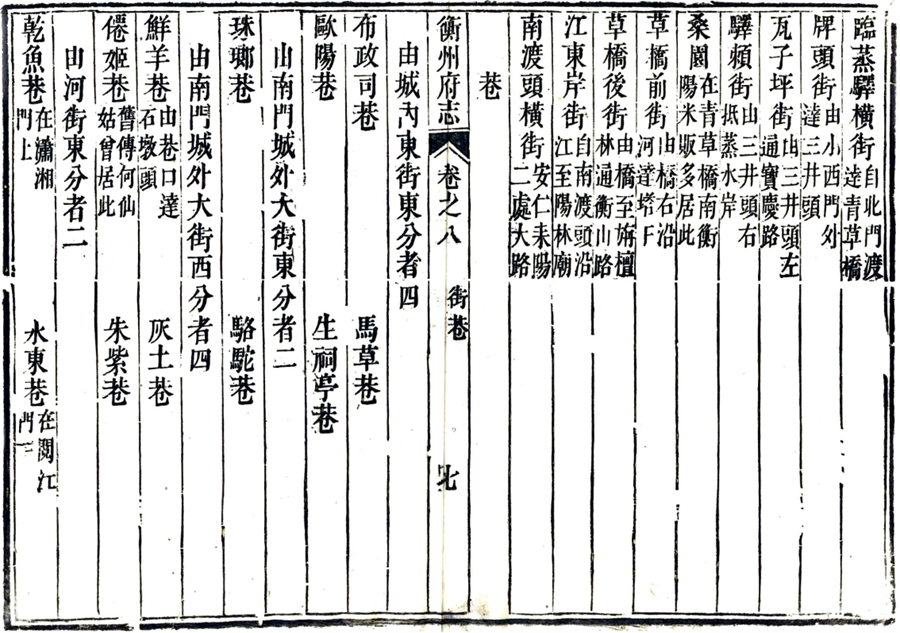 臨蒸驛橫街自北門渡達青草橋
牌頭街由小西門外達三井頭
瓦子坪街由三井頭左通寶慶路
驛頼街由三井頭右抵蒸水岸
桑園在青草橋南衡陽米販多居此
草橋前街由橋右沿河達塔下
草橋後街由橋至㜑檀林通衡山路
江東岸街自南渡頭沿江至陽林廟
南渡頭橫街安仁耒陽二處大路
巷
衡州府志 卷之八 街巷 七
由城內東街東分者四
布政司巷 馬草巷
歐陽巷 生祠亭巷
由南門城外大街東分者二
珠瑯巷 駱駝巷
由南門城外大街西分者四
鮮羊巷由巷口達石墩頭 灰土巷
僊姬巷舊傳何仙姑曾居此 朱紫巷
由河街東分者二
乾魚巷在瀟湘門上 水東巷在閱江門